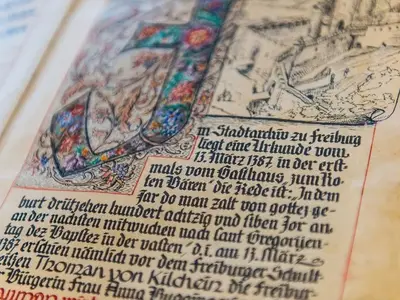 m Stadtarchiv zu Freiburg
liegt eine Urkunde vom
13. März 1387 in der erst
mals vom Gasthaus „zum Ro
ten Bären" die Rede ist: „In dem
Jar do man zalt von gottez ge
burt drützehen hundert achtzig und siben Jor an
an der nachsten mitwuchen nach Sant Gregorijen
tag dez Bapstez in der vasten", d.i. am 13. März
1387 erschien nämlich vor dem Freiburger Schult
heißen Thoman von Kilchein die Freibur
r Bürgerin Frau Anna